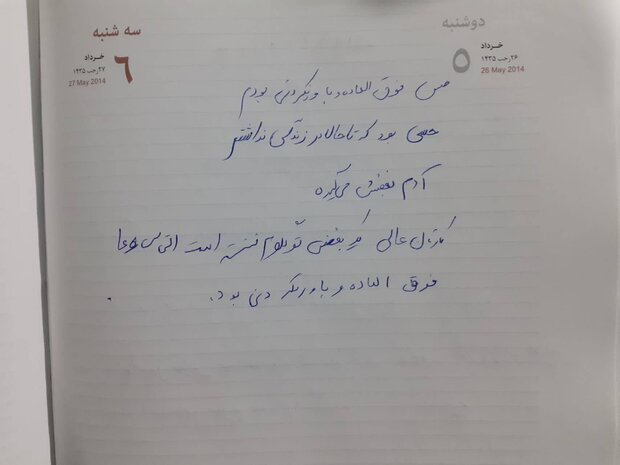 دوشنبه
خرداد
۵
۲۶ رجب ۱۴۳۵
26 May 2014
سه شنبه
خرداد
۶
۲۷ رجب ۱۴۳۵
27 May 2014
حس فوق العاده و باورنکردنی بودم
حسی بود که تا حالا در زندگی نداشتم
آدم نفسش میگیره
عالی بغضی تو گلوم است
فوق العاده و باورنکردنی بود.